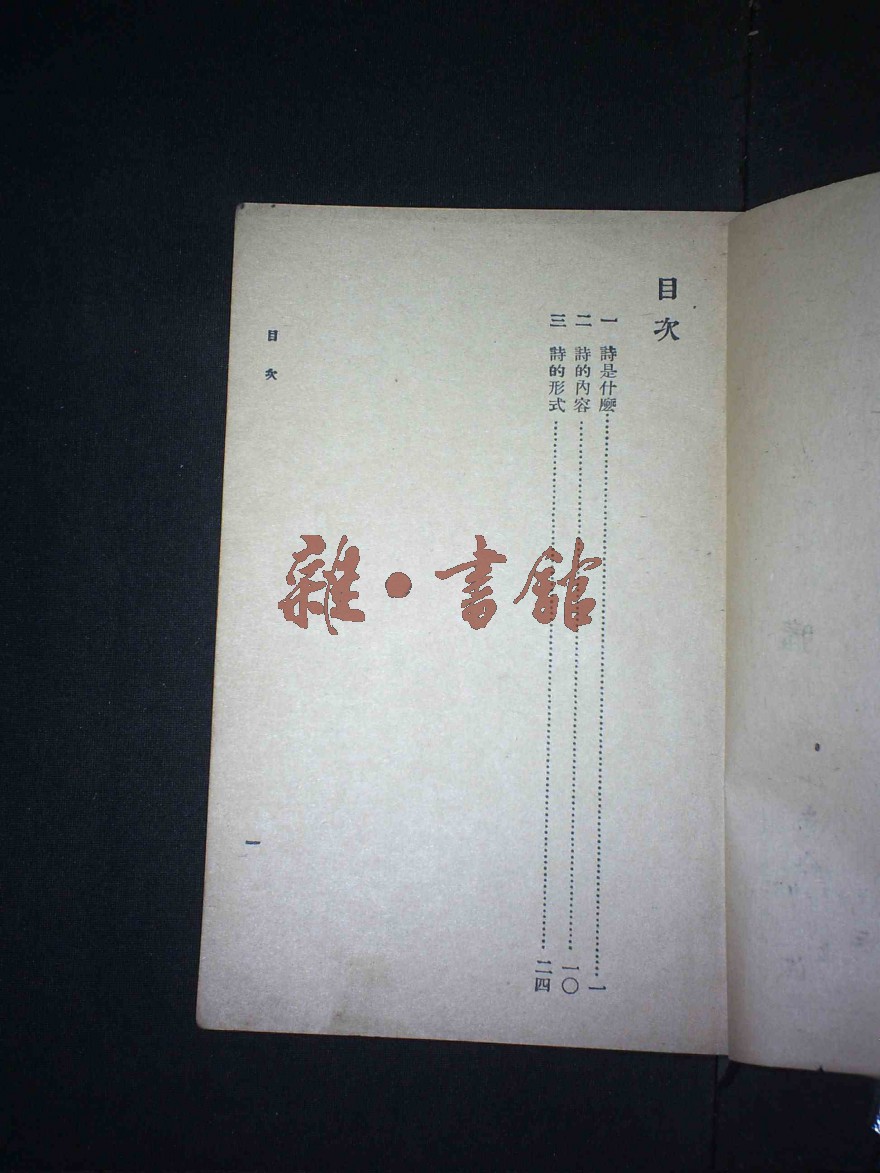 目次
一 詩是什麼……一
二 詩的內容……一〇
三 詩的形式……二四
目次
一
雜·書館